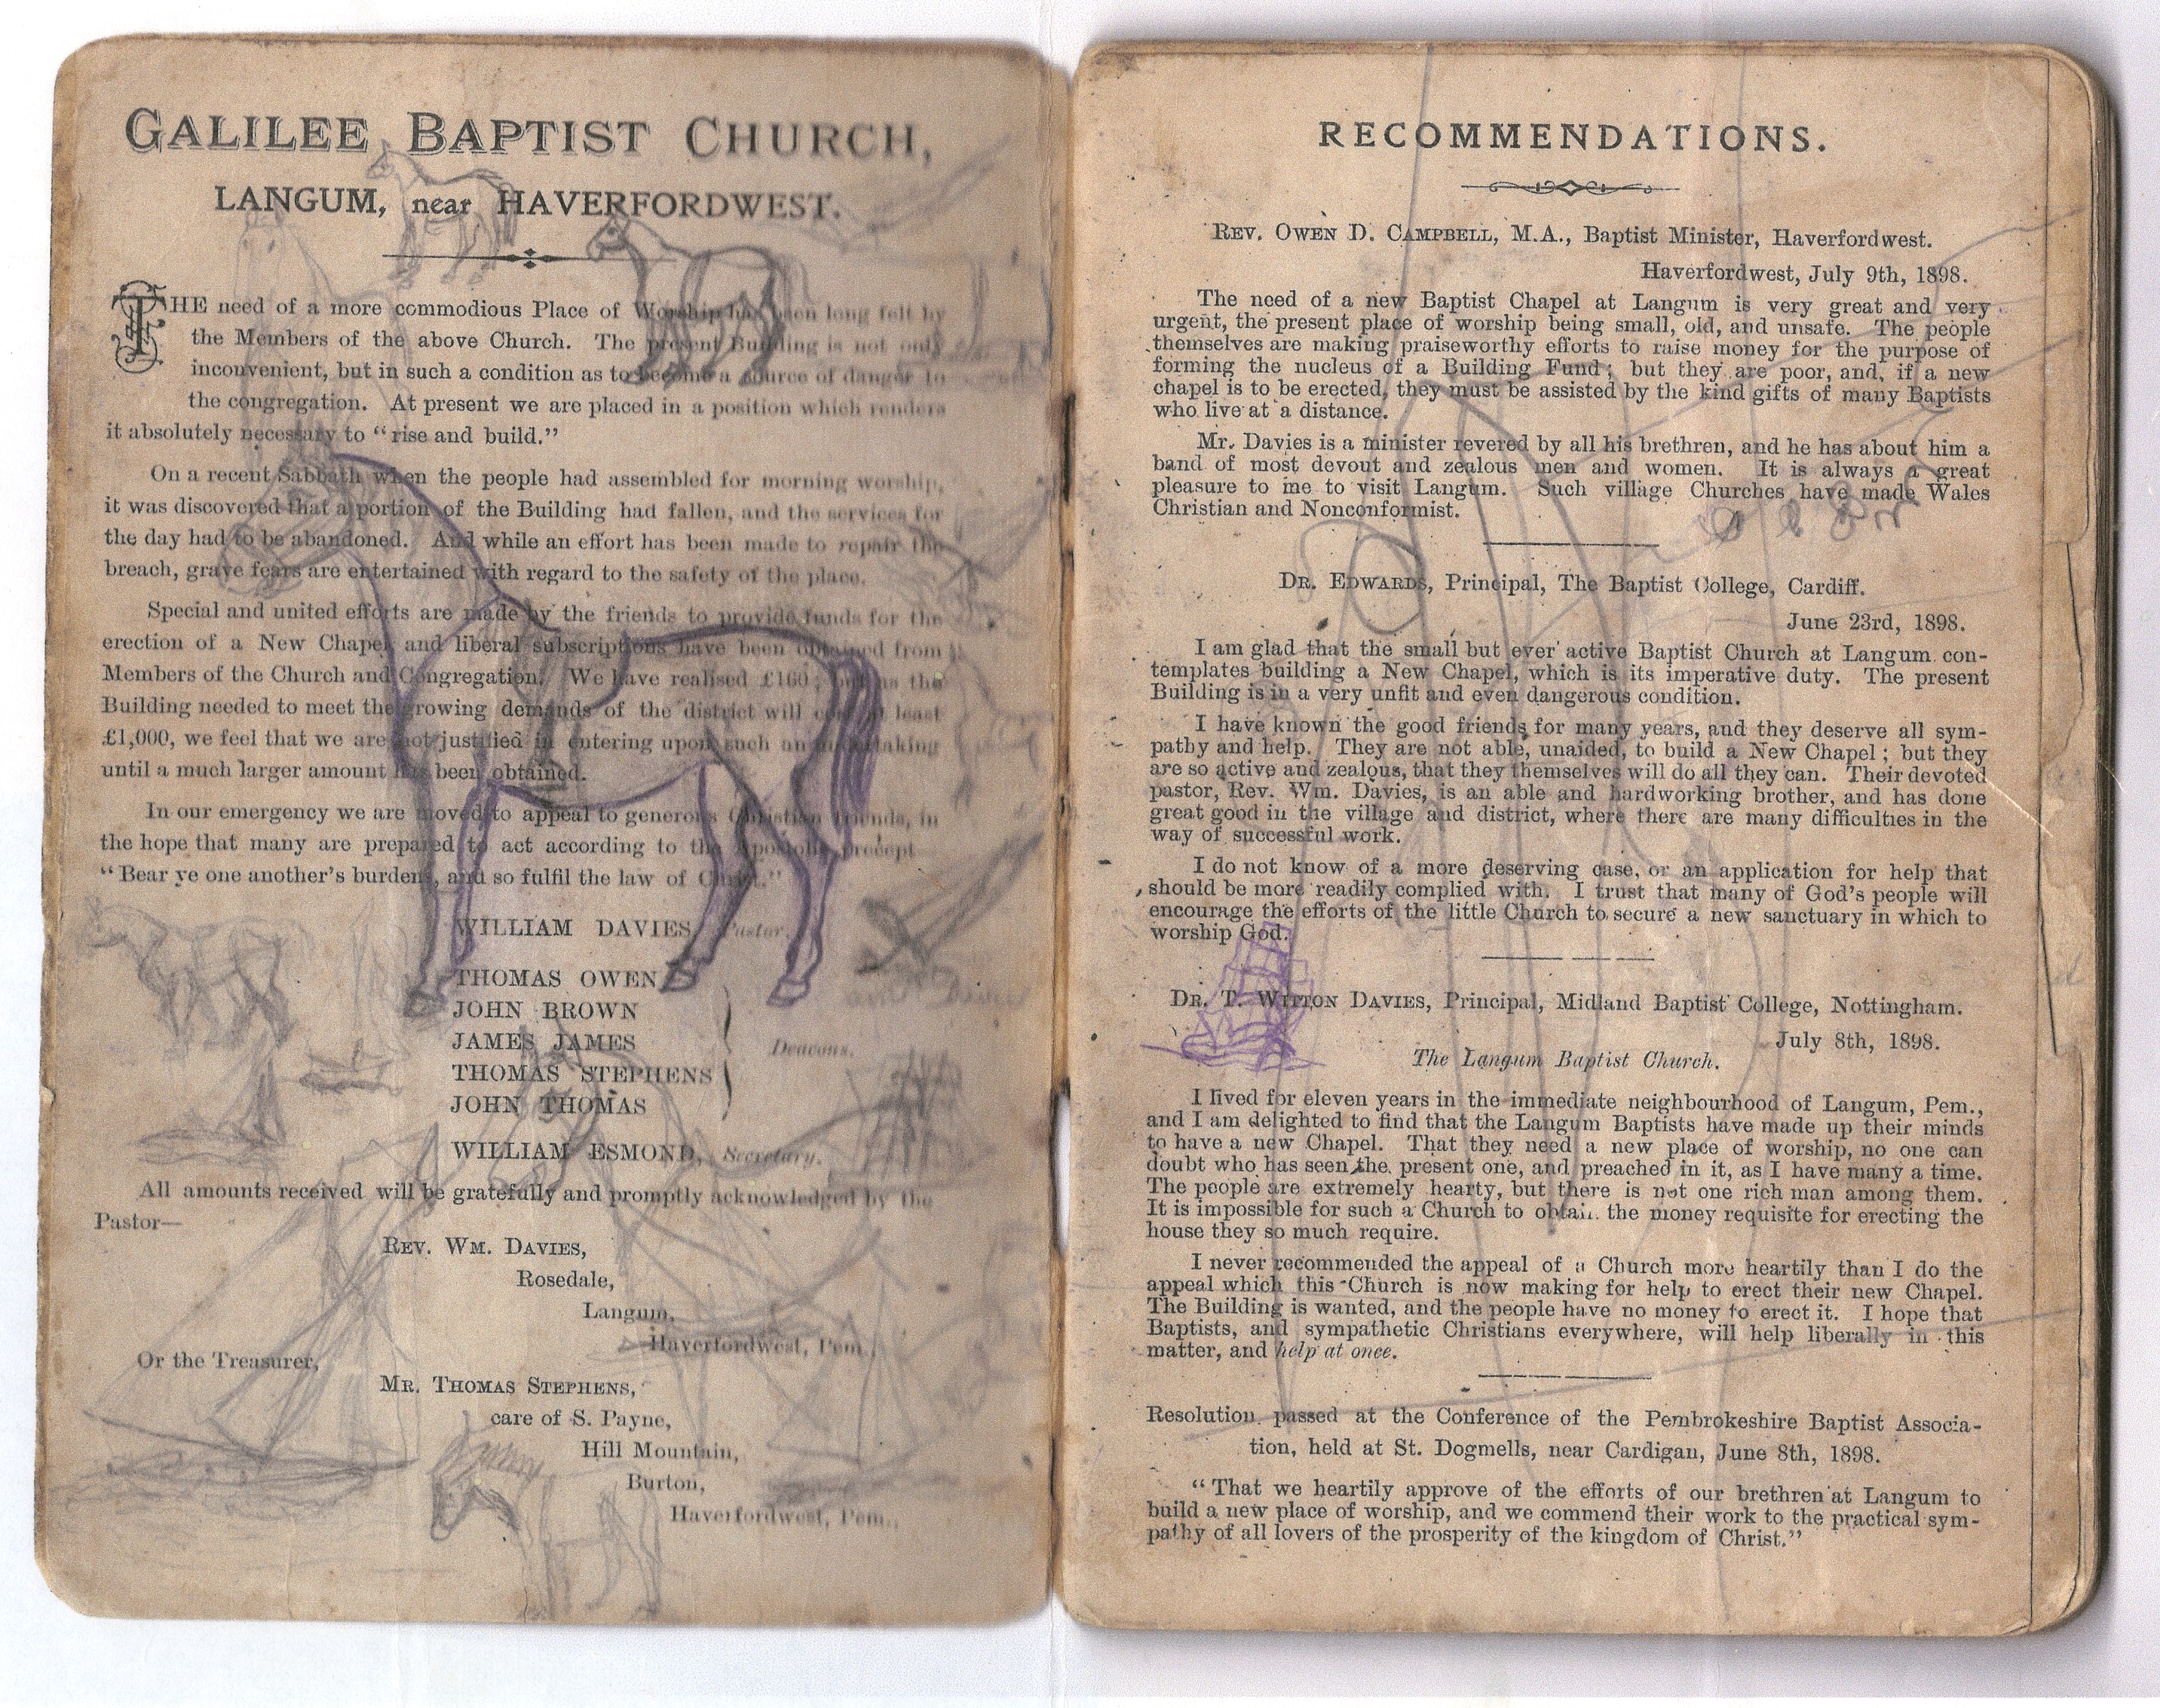 GALILEE BAPTIST CHURCH,
LANGUM, near HAVERFORDWEST.
THE need of a more commodious Place of Worship has been long felt by
the Members of the above Church. The present Building is not only
inconvenient, but in such a condition as to become a source of danger to
the congregation. At present we are placed in a position which renders
it absolutely necessary to “rise and build.”
On a recent Sabbath when the people had assembled for morning worship,
it was discovered that a portion of the Building had fallen, and the services for
the day had to be abandoned. And while an effort has been made to repair the
breach, grave fears are entertained with regard to the safety of the place.
Special and united efforts are made by the friends to provide funds for the
erection of a New Chapel and liberal subscriptions have been obtained from
Members of the Church and Congregation. We have realised £160; but as the
Building needed to meet the growing demands of the district will cost at least
£1,000, we feel that we are not justified in entering upon such an undertaking
until a much larger amount has been obtained.
In our emergency we are moved to appeal to generous Christian friends, in
the hope that many are prepared to act according to the Apostolic precept
“Bear ye one another's burdens, and so fulfil the law of Christ.”
WILLIAM DAVIES, Pastor.
THOMAS OWEN
JOHN BROWN
JAMES JAMES
Deacons.
THOMAS STEPHENS
JOHN THOMAS
WILLIAM ESMOND, Secretary.
All amounts received will be gratefully and promptly acknowledged by the
Pastor—
REV. WM. DAVIES,
Rosedale,
Langum,
Haverfordwest, Pem.,
Or the Treasurer,
MR. THOMAS STEPHENS,
care of S. Payne,
Hill Mountain,
Burton,
Haverfordwest, Pem.,
RECOMMENDATIONS.
REV. OWEN D. CAMPBELL, M.A., Baptist Minister, Haverfordwest.
Haverfordwest, July 9th, 1898.
The need of a new Baptist Chapel at Langum is very great and very
urgent, the present place of worship being small, old, and unsafe. The people
themselves are making praiseworthy efforts to raise money for the purpose of
forming the nucleus of a Building Fund; but they are poor, and, if a new
chapel is to be erected, they must be assisted by the kind gifts of many Baptists
who live at a distance.
Mr. Davies is a minister revered by all his brethren, and he has about him a
band of most devout and zealous men and women. It is always a great
pleasure to me to visit Langum. Such village Churches have made Wales
Christian and Nonconformist.
DR. EDWARDS, Principal, The Baptist College, Cardiff.
June 23rd, 1898.
I am glad that the small but ever active Baptist Church at Langum con-
templates building a New Chapel, which is its imperative duty. The present
Building is in a very unfit and even dangerous condition.
I have known the good friends for many years, and they deserve all sym-
pathy and help. They are not able, unaided, to build a New Chapel; but they
are so active and zealous, that they themselves will do all they can. Their devoted
pastor, Rev. Wm. Davies, is an able and hardworking brother, and has done
great good in the village and district, where there are many difficulties in the
way of successful work.
I do not know of a more deserving case, or an application for help that
should be more readily complied with. I trust that many of God's people will
encourage the efforts of the little Church to secure a new sanctuary in which to
worship God.
DR. T. WITTON DAVIES, Principal, Midland Baptist College, Nottingham.
July 8th, 1898.
The Langum Baptist Church.
I lived for eleven years in the immediate neighbourhood of Langum, Pem.,
and I am delighted to find that the Langum Baptists have made up their minds
to have a new Chapel. That they need a new place of worship, no one can
doubt who has seen the present one, and preached in it, as I have many a time.
The people are extremely hearty, but there is not one rich man among them.
It is impossible for such a Church to obtain the money requisite for erecting the
house they so much require.
I never recommended the appeal of a Church more heartily than I do the
appeal which this Church is now making for help to erect their new Chapel.
The Building is wanted, and the people have no money to erect it. I hope that
Baptists, and sympathetic Christians everywhere, will help liberally in this
matter, and help at once.
Resolution passed at the Conference of the Pembrokeshire Baptist Associa-
tion, held at St. Dogmells, near Cardigan, June 8th, 1898.
“That we heartily approve of the efforts of our brethren at Langum to
build a new place of worship, and we commend their work to the practical sym-
pathy of all lovers of the prosperity of the kingdom of Christ.”